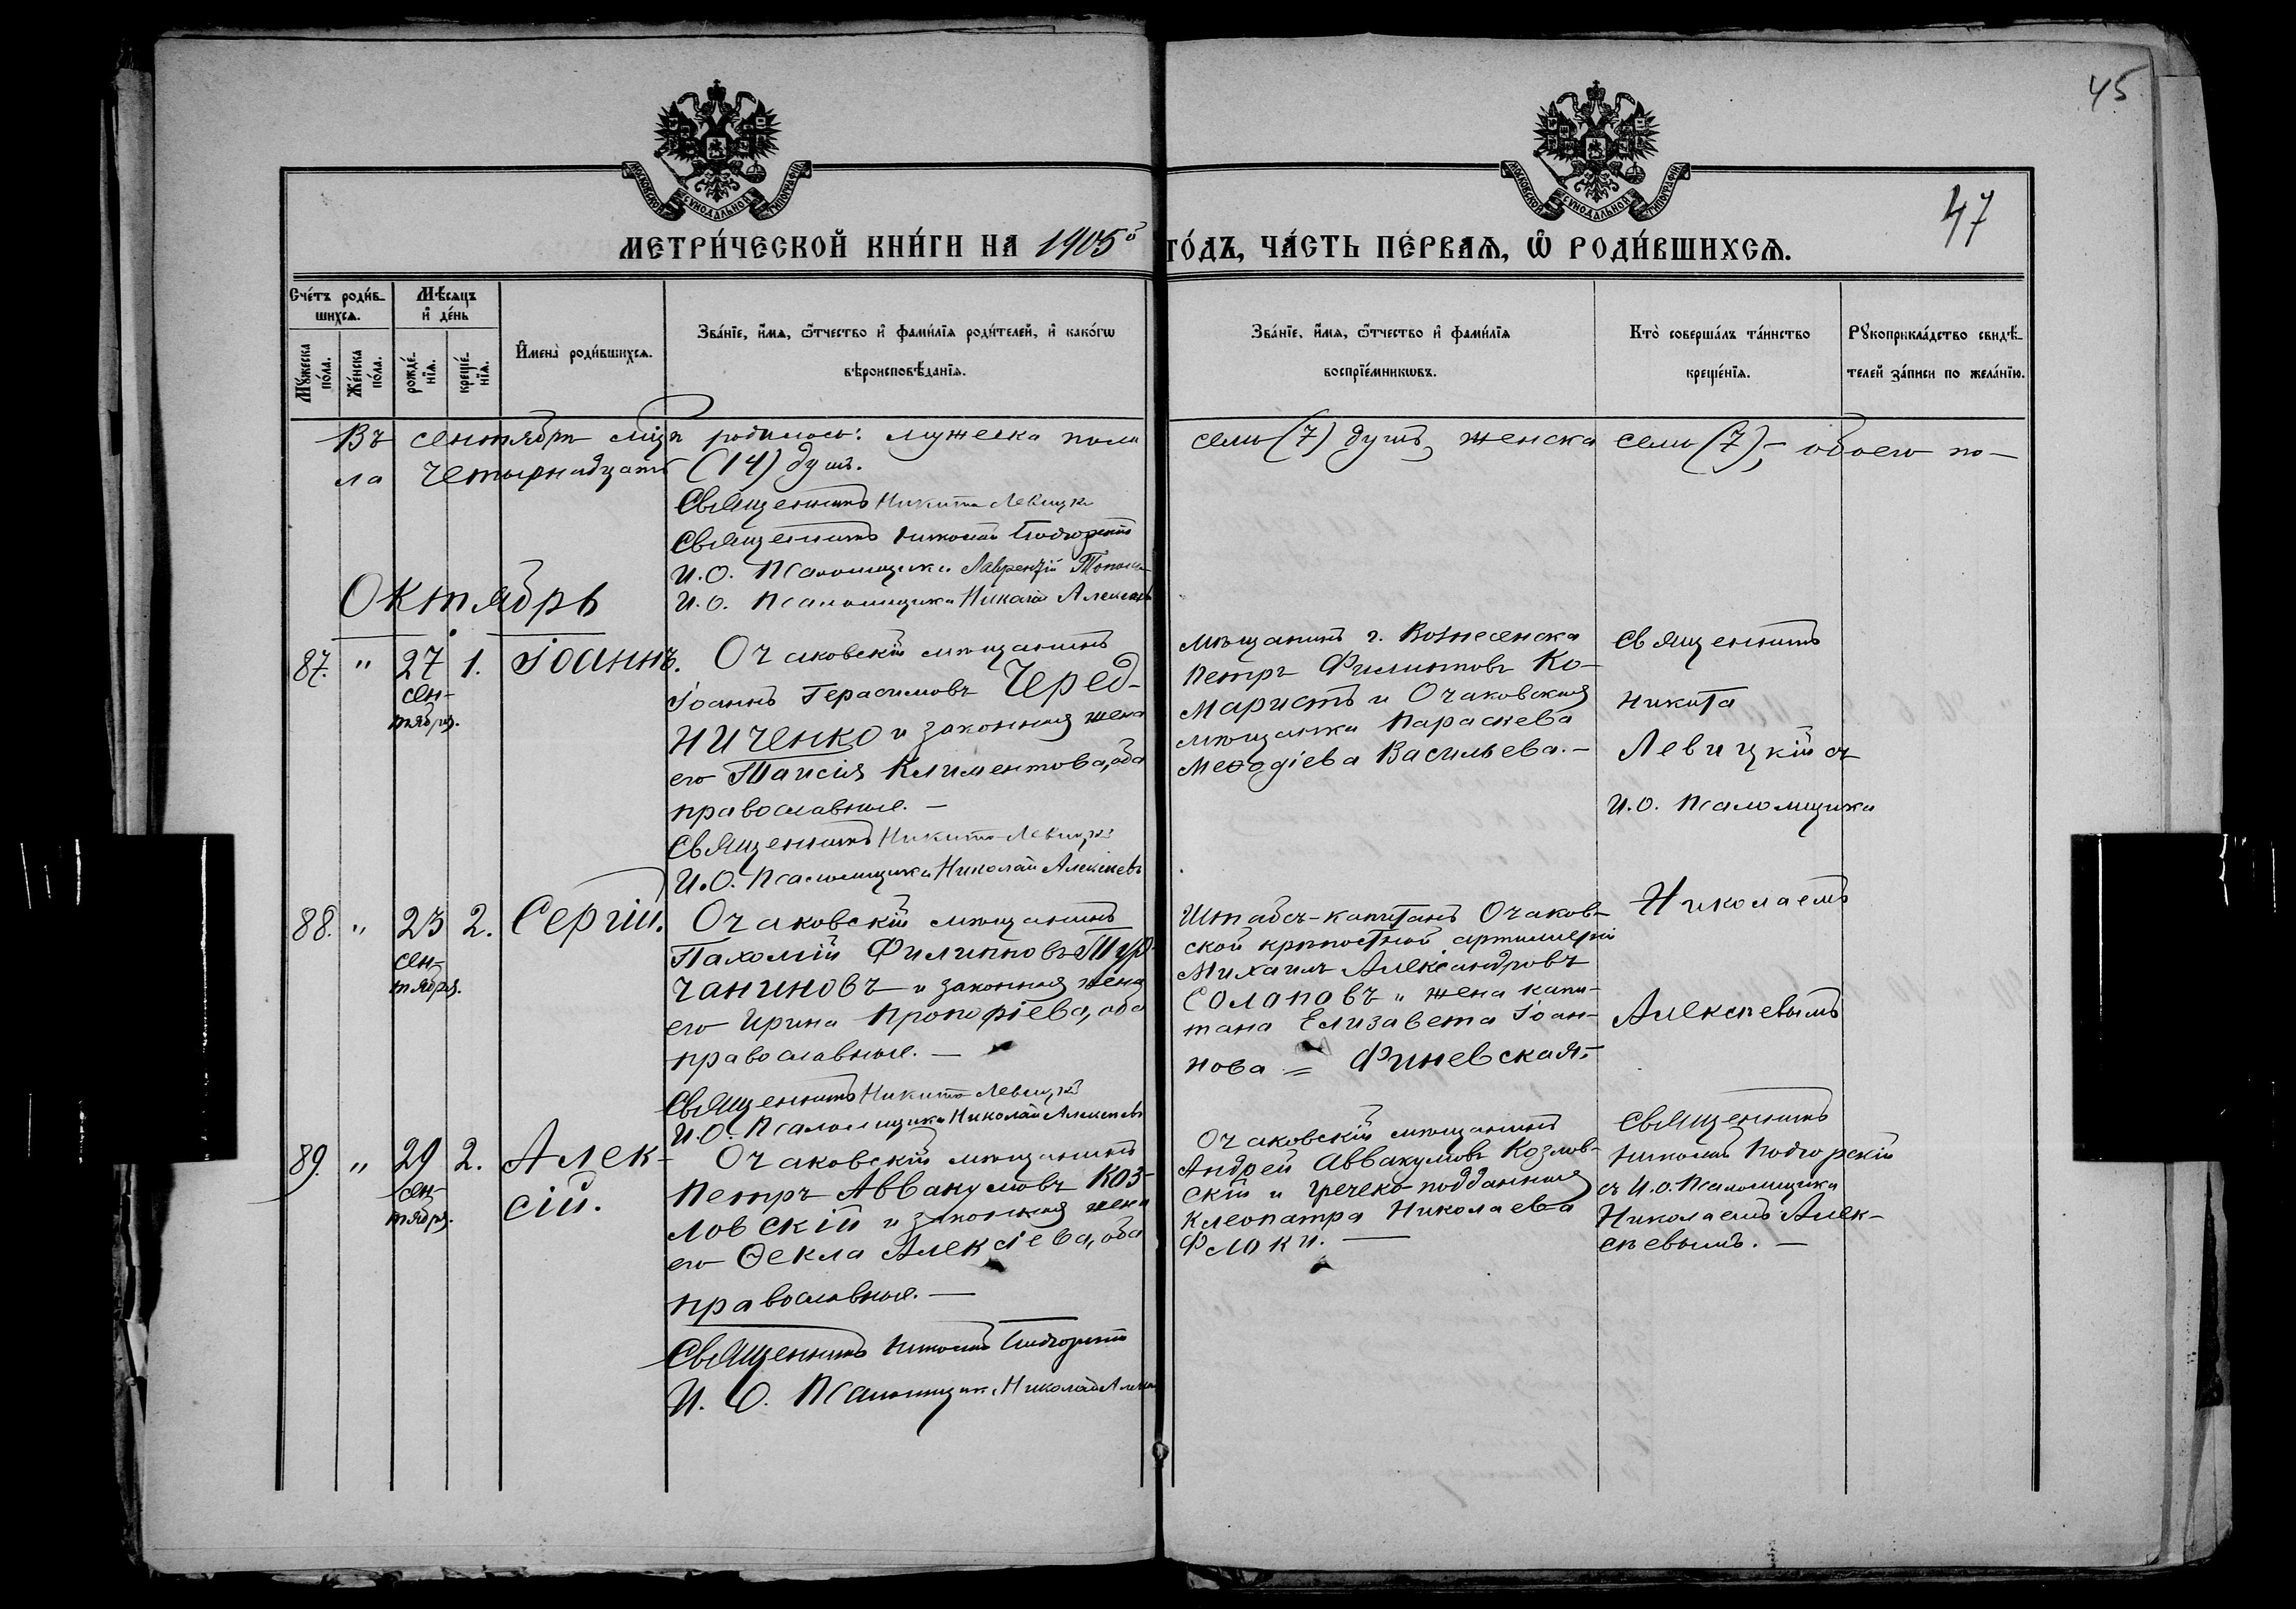 45
47
МОСКОВСКОЙ СѴНОДАЛЬНОЙ ТИПОГРАФІИ
МОСКОВСКОЙ СѴНОДАЛЬНОЙ ТИПОГРАФІИ
МЕТРИ́ЧЕСКОЙ КНИ́ГИ НА 1905й ГО́ДЪ, ЧА́СТЬ ПЕ́РВАѦ, Ѽ РОДИ́ВШИХСѦ.
Сче́тъ роди́в-
шихсѧ.
Мꙋ́жеска
по́ла.
Же́нска
по́ла.
Мѣ́сѧцъ
и҆ де́нь
рожде́-
нїѧ.
креще́-
нїѧ.
И҆мена̀ роди́вшихсѧ.
Зва́нїе, и҆́мѧ, ѻ҆́тчество и҆ фами́лїѧ роди́телей, и҆ како́гѡ
вѣроисповѣ́данїѧ.
Зва́нїе, и҆́мѧ, ѻ҆́тчество и҆ фами́лїѧ
воспрїе́мникѡвъ.
Кто̀ соверша́лъ та́инство
креще́нїѧ.
Рꙋкоприкла́дство свидѣ́-
телей за́писи по жела́нїю.
Въ сентябрѣ мцѣ родилось: мужеска пола семь (7) душъ, женска семь (7); – обоего по-
ла четырнадцать (14) душъ.
Священникъ Никита Левицкій
Священникъ Николай Подгорскій
И. О. Псаломщика Лаврентій
И. О. Псаломщика Николай Алексѣевъ
Октябрь
87. " 27 сен-
тября. 1. Іоаннъ.
Очаковскій мѣщанинъ
Іоаннъ Герасимовъ Черед-
ниченко и законная жена
его Таисія Климентова, оба
православные. –
Священникъ Никита Левицкій
И. О. Псаломщика Николай Алексѣевъ
Мѣщанинъ г. Вознесенска
Петръ Филипповъ Ко-
маристъ и Очаковская
мѣщанка Параскева
Меѳодіева Васильева. –
Священникъ
Никита
Левицкій съ
И. О. Псаломщика
Николаемъ
Алексѣевымъ
88. " 23 сен-
тября. 2. Сергій.
Очаковскій мѣщанинъ
Пахомій Филипповъ Тур-
чаниновъ и законная жена
его Ирина Прокофіева, оба
православные. –
Священникъ Никита Левицкій
И. О. Псаломщика Николай Алексѣевъ
Штабсъ-капитанъ Очаков-
ской крѣпостной артиллеріи
Михаилъ Александровъ
Солаповъ и жена капи-
тана Елизавета Іоан-
нова = Финевская. –
89. " 29 сен-
тября. 2. Алек-
сій.
Очаковскій мѣщанинъ
Петръ Аввакумовъ Коз-
ловскій и законная жена
его Ѳекла Алексіева, оба
православные. –
Священникъ Николай Подгорскій
И. О. Псаломщика Николай Алексѣевъ
Очаковскій мѣщанинъ
Андрей Аввакумовъ Козлов-
скій и греческо-подданная
Клеопатра Николаева
Флоки. –
Священникъ
Николай Подгорскій
съ И. О. Псаломщика
Николаемъ Алек-
сѣевымъ. –